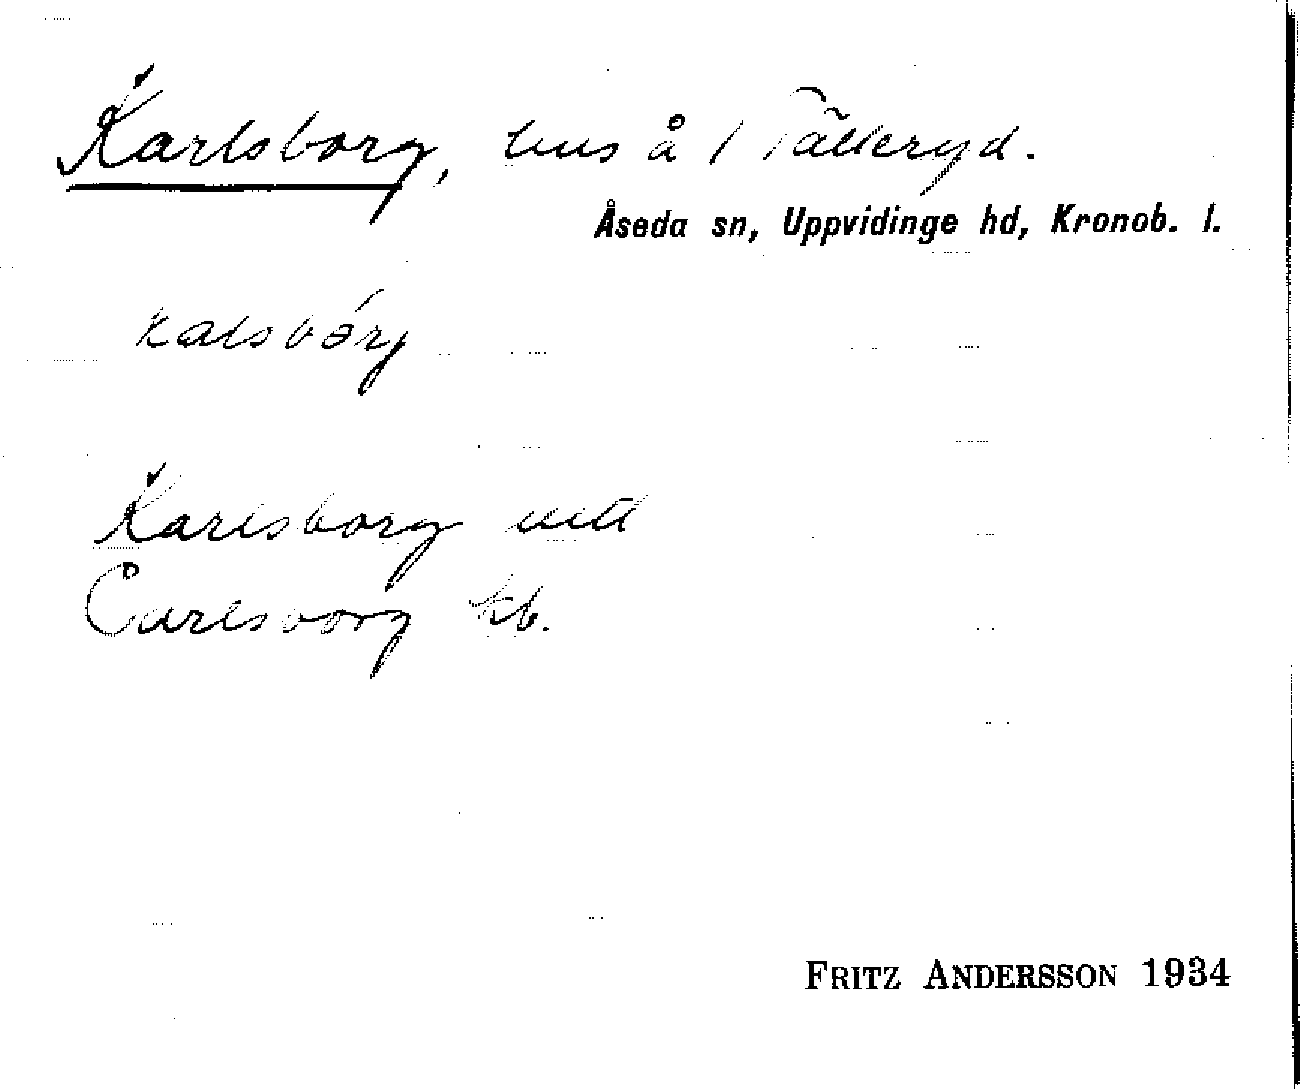 Karlsborg, hus å 1 Tälleryd.
Åseda sn, Uppvidinge hd, Kronob. l.
kalsbórj
Karlsborg
Carlsborg kb.
FRITZ ANDERSSON 1934